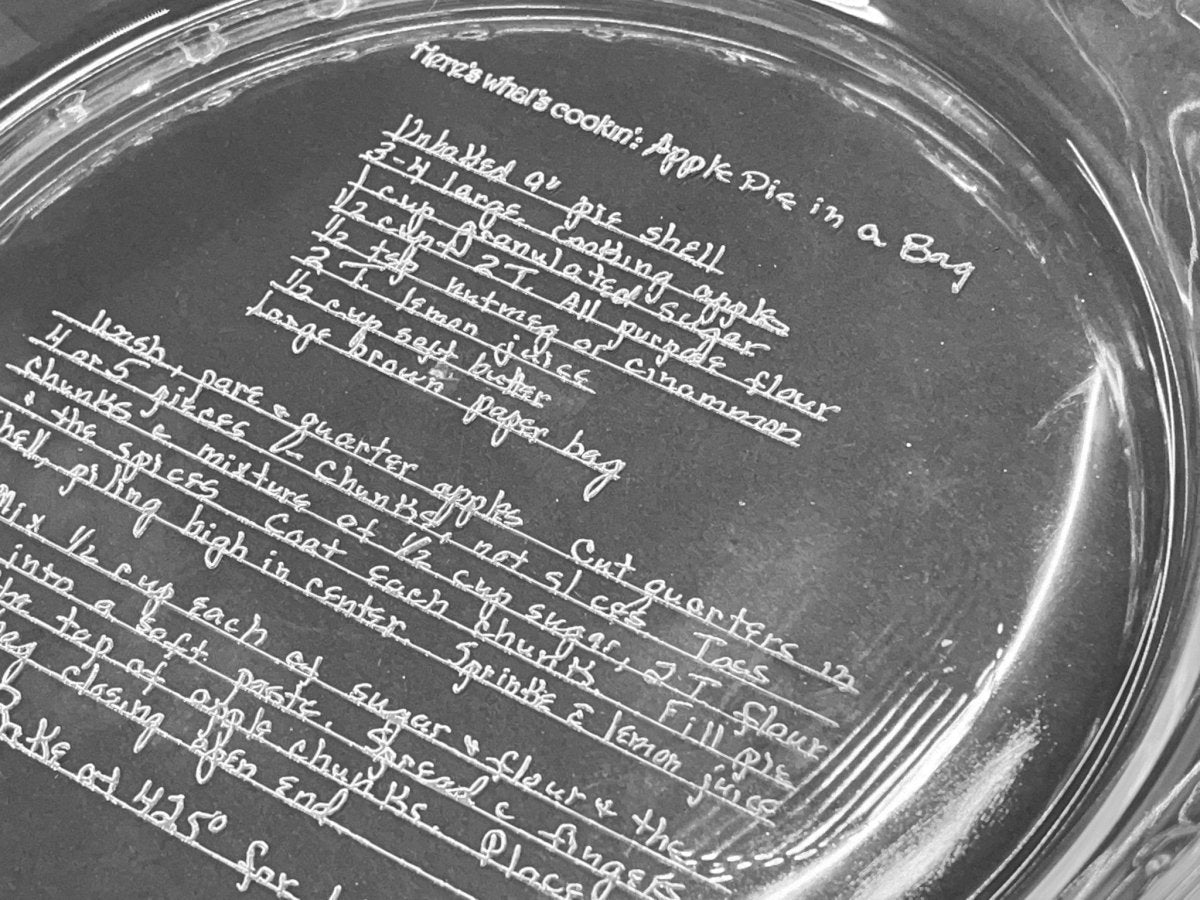 Here's what's cookin': Apple Pie in a Bag
Unbaked 9" pie shell
3-4 large cooking apples
1 cup granulated sugar
1/2 cup + 2 T. All purpose flour
1/2 tsp nutmeg or Cinammon
2 T. lemon juice
1/2 cup soft butter
large brown paper bag
Wash, pare & quarter apples Cut quarters in
4 or 5 pieces - Chunks, not slices. Toss
chunks c mixture of 1/2 cup sugar, 2 T flour
& the spices Coat each chunk. Fill pie
shell, piling high in center. Sprinkle c lemon juice
Mix 1/2 cup each of sugar & flour & the
into a soft paste. Spread c fingers
the top of apple chunks. Place
bag closing open end
Bake at 425° for 1